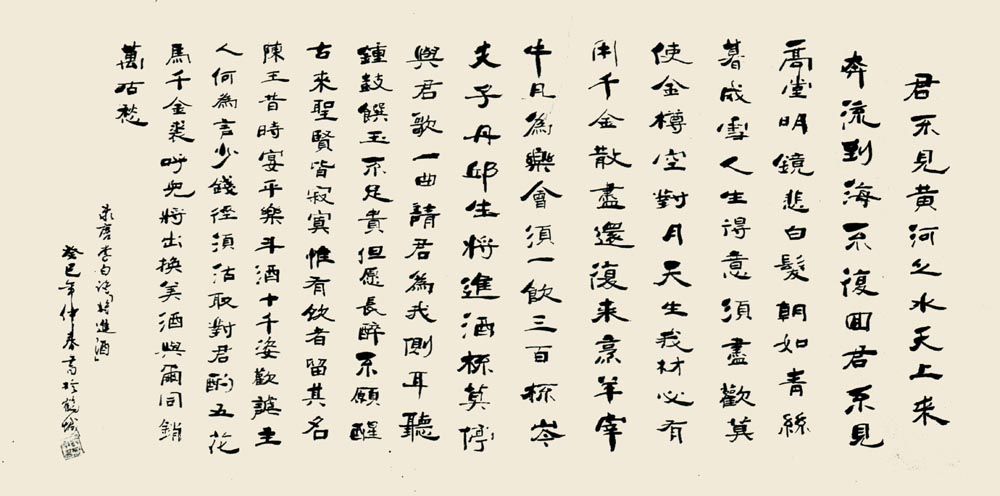 君不見黃河之水天上来
奔流到海不復回君不見
高堂明鏡悲白髮朝如青絲
暮成雪人生得意須盡歡莫
使金樽空對月天生我材必有
用千金散盡還復来烹羊宰
牛且為樂會須一飲三百杯岑
夫子丹邱生將進酒杯莫停
與君歌一曲請君為我側耳聽
鍾鼓饌玉不足貴但愿長醉不願醒
古来聖賢皆寂寞惟有飲者留其名
陳王昔時宴平樂斗酒十千姿歡謔主
人何為言少錢徑須沽取對君酌五花
馬千金裘呼兒將出換美酒與爾同銷
萬古愁
录唐李白詩將進酒
癸巳年仲春